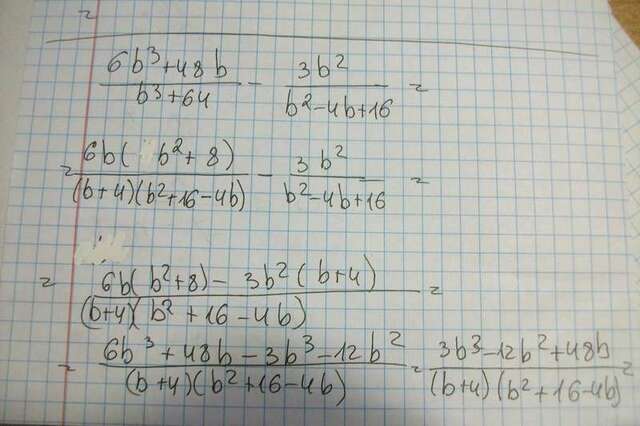 =
(6b³+48b)/(b³+64) - 3b²/(b²-4b+16) =
= 6b(b²+8)/((b+4)(b²+16-4b)) - 3b²/(b²-4b+16) =
= (6b(b²+8) - 3b²(b+4))/((b+4)(b²+16-4b)) =
= (6b³+48b-3b³-12b²)/((b+4)(b²+16-4b)) = (3b³-12b²+48b)/((b+4)(b²+16-4b)) =